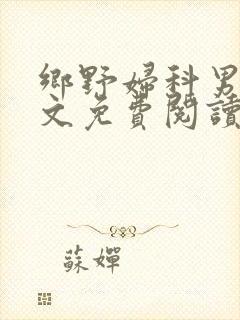 鄉野婦科男
文免費閱讀
蘇嬋